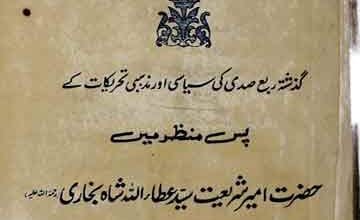 گذشتہ ربع صدی کی سیاسی اور مذہبی تحریکات کے
پس منظر میں
حضرت امیر شریعت سید عطاء اللہ شاہ بخاری (رحمۃ اللہ علیہ)